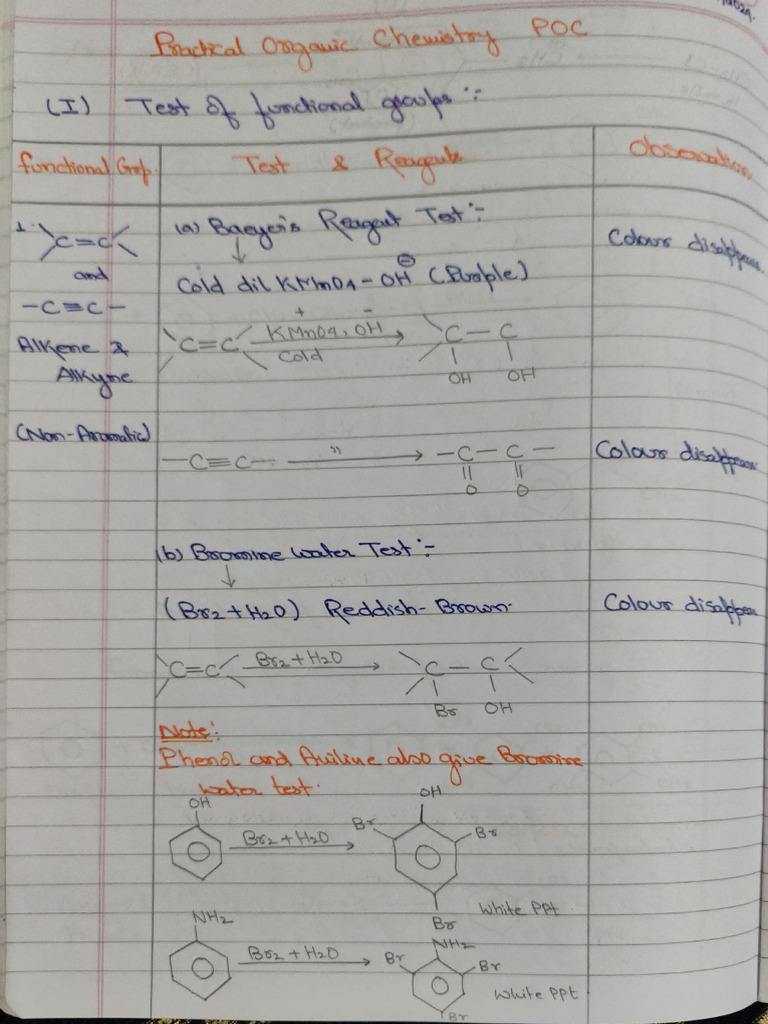 Practical Organic Chemistry POC
(I) Test of functional groups :-
functional Grp.
Test & Reagents
Observation
1. >C=C<
and
-C≡C-
Alkene &
Alkyne
(Non-Aromatic)
(a) Baeyer's Reagent Test :-
↓
Cold dil KMnO4 - OH⊖ (Purple)
Colour disappears
>C=C< + KMnO4, OH⁻ → C - C
Cold
OH OH
-C≡C- " → -C-C-
O O
Colour disappears
(b) Bromine water Test :-
↓
(Br2 + H2O) Reddish-Brown.
Colour disappear
>C=C< Br2 + H2O → >C - C<
Br OH
Note:
Phenol and Aniline also give Bromine
water test.
OH
Br2 + H2O →
OH
Br Br
Br
White PPt
NH2
Br2 + H2O →
NH2
Br Br
Br
White PPt.